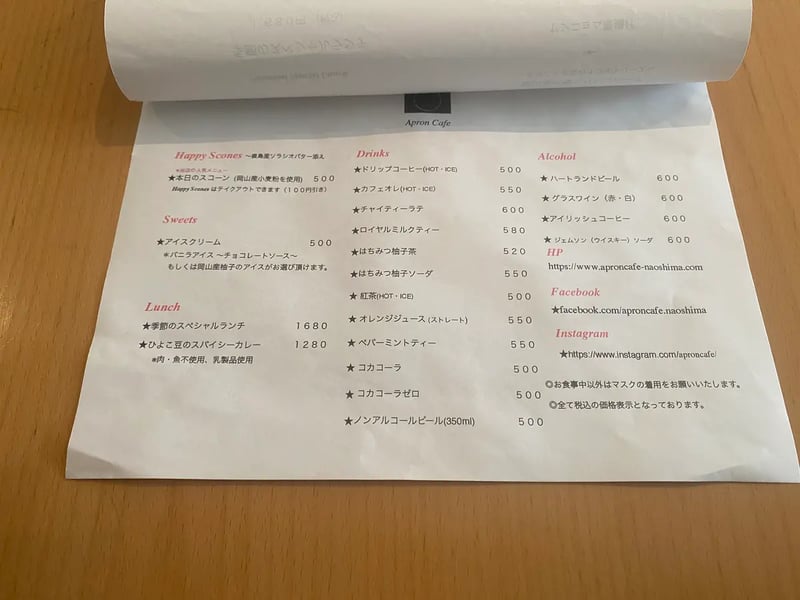 Apron Cafe
Happy Scones ～鹿島産ソラシオバター添え
★本日のスコーン (岡山産小麦粉を使用) 500
Happy Scones はテイクアウトできます（100円引き）
Sweets
★アイスクリーム 500
＊バニラアイス ～チョコレートソース～
もしくは岡山産柚子のアイスがお選び頂けます。
Lunch
★季節のスペシャルランチ 1680
★ひよこ豆のスパイシーカレー 1280
＊肉・魚不使用、乳製品使用
Drinks
★ドリップコーヒー(HOT・ICE) 500
★カフェオレ(HOT・ICE) 550
★チャイティーラテ 600
★ロイヤルミルクティー 580
★はちみつ柚子茶 520
★はちみつ柚子ソーダ 550
★紅茶(HOT・ICE) 500
★オレンジジュース(ストレート) 550
★ペパーミントティー 550
★コカコーラ 500
★コカコーラゼロ 500
★ノンアルコールビール(350ml) 500
Alcohol
★ハートランドビール 600
★グラスワイン（赤・白） 600
★アイリッシュコーヒー 600
★ジェムソン（ウイスキー）ソーダ 600
HP
https://www.aproncafe-naoshima.com
Facebook
★facebook.com/aproncafe.naoshima
Instagram
★https://www.instagram.com/aproncafe/
◎お食事中以外はマスクの着用をお願いいたします。
◎全て税込の価格表示となっております。